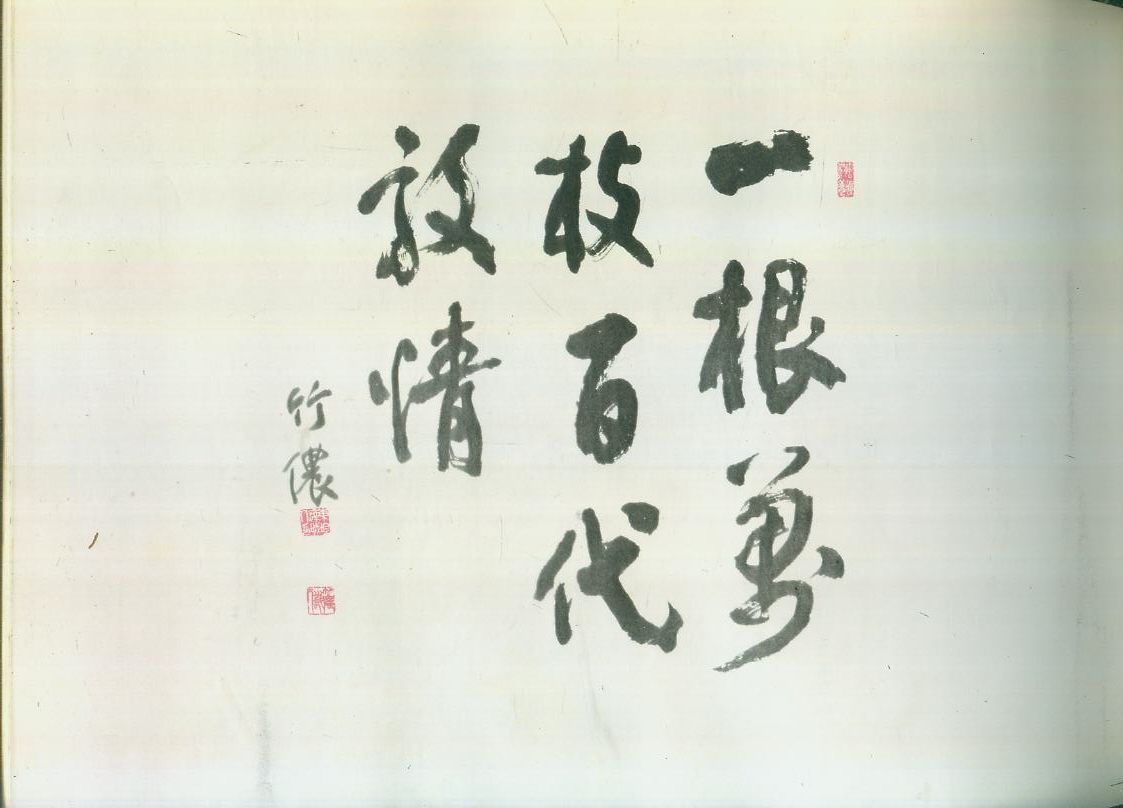 一根萬
枝百代
敦情
竹儂